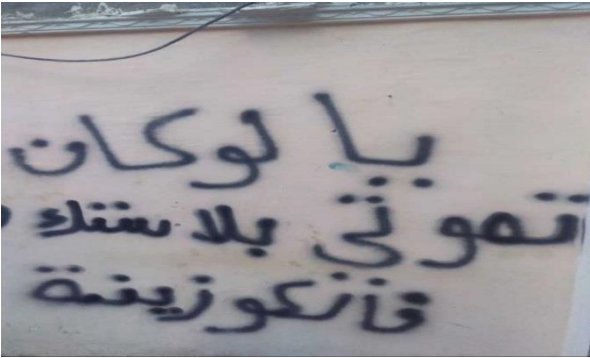 بيا لوكان
تموتي بلاستك
فانكوزينة